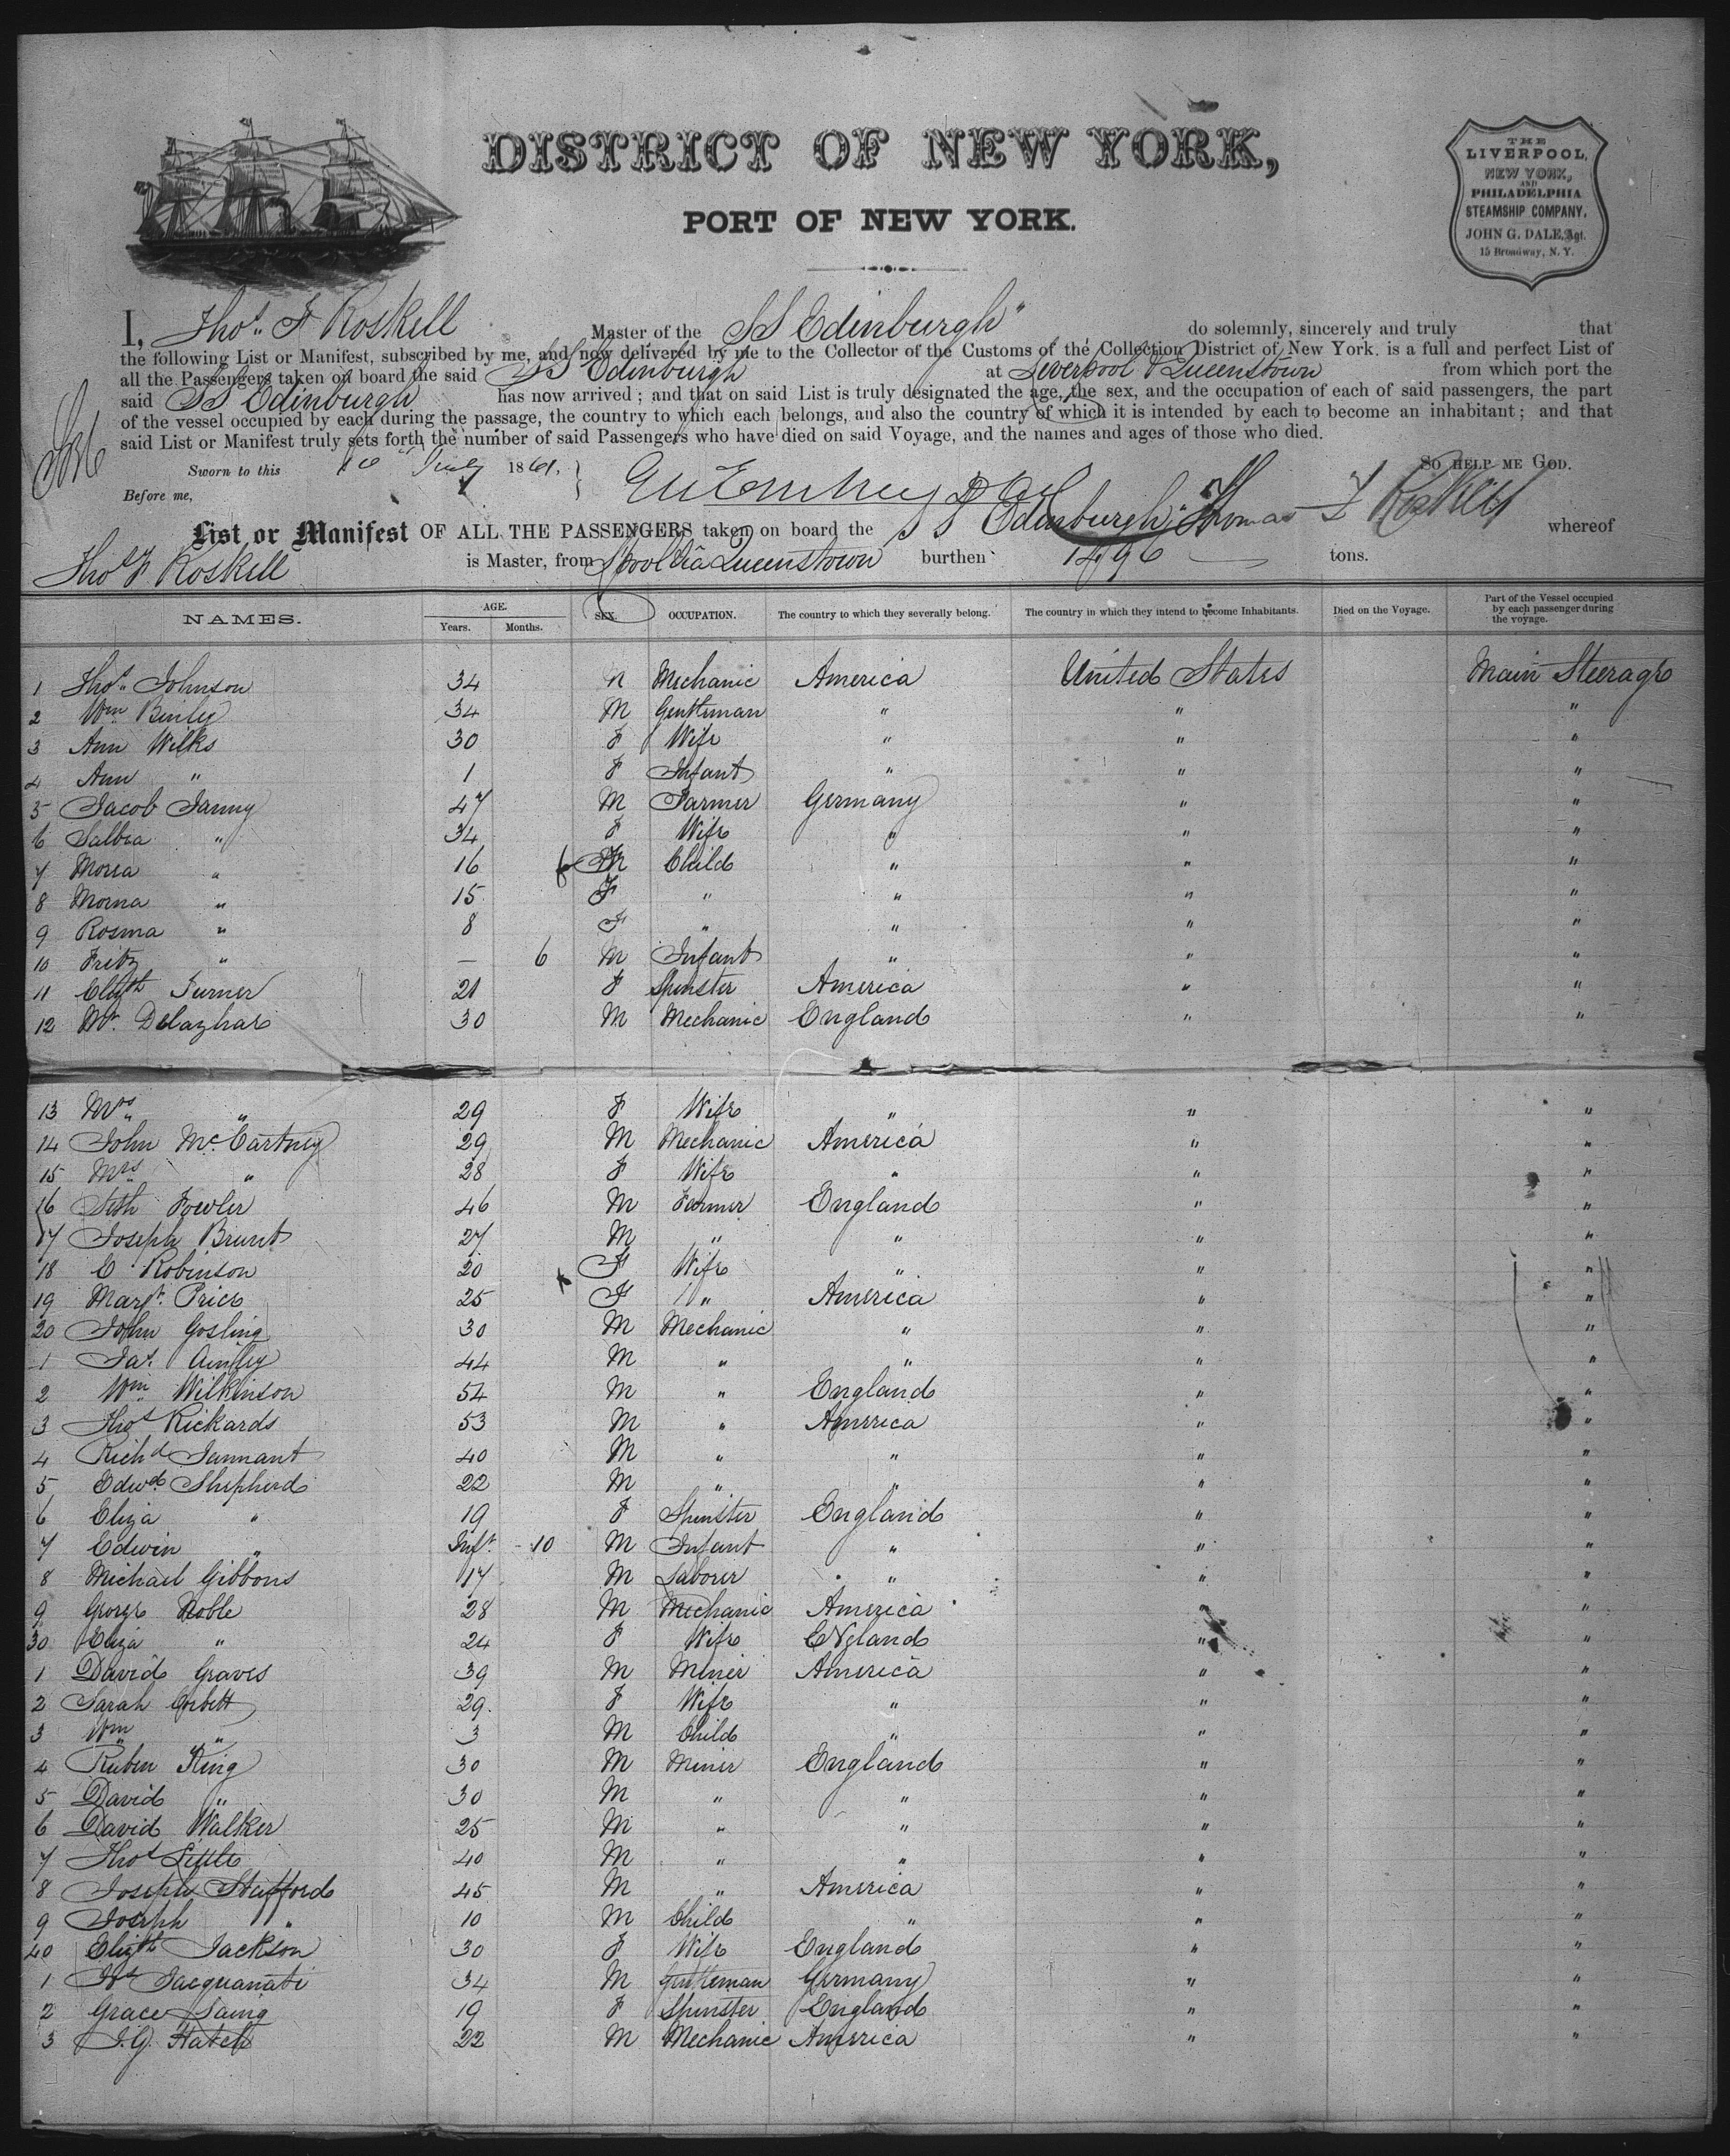 DISTRICT OF NEW YORK,
PORT OF NEW YORK.
THE
LIVERPOOL,
NEW YORK,
AND
PHILADELPHIA
STEAMSHIP COMPANY.
JOHN G. DALE, Agt.
15 Broadway, N. Y.
I, Thos. F Roskell Master of the SS Edinburgh" do solemnly, sincerely and truly that
the following List or Manifest, subscribed by me, and now delivered by me to the Collector of the Customs of the Collection District of New York. is a full and perfect List of
all the Passengers taken on board the said SS Edinburgh at Liverpool & Queenstown from which port the
said SS Edinburgh has now arrived ; and that on said List is truly designated the age, the sex, and the occupation of each of said passengers, the part
of the vessel occupied by each during the passage, the country to which each belongs, and also the country of which it is intended by each to become an inhabitant ; and that
said List or Manifest truly sets forth the number of said Passengers who have died on said Voyage, and the names and ages of those who died.
Sworn to this 10 July 1861. SO HELP ME GOD.
Before me,
List or Manifest OF ALL THE PASSENGERS taken on board the SS Edinburgh Thomas F Roskell whereof
Thos F Roskell is Master, from Lpool via Queenstown burthen 1496 tons.
NAMES. AGE. Years. Months. SEX. OCCUPATION. The country to which they severally belong. The country in which they intend to become Inhabitants. Died on the Voyage. Part of the Vessel occupied by each passenger during the voyage.
1 Thos. Johnson 34 M Mechanic America United States Main Steerage
2 Wm Binley 34 M Gentleman " " "
3 Ann Wilks 30 F Wife " " "
4 Ann " 1 F Infant " " "
5 Jacob Janny 47 M Farmer Germany " "
6 Salbia " 34 F Wife " " "
7 Moria " 16 Child " " "
8 Morna " 15 F " " " "
9 Rosma " 8 F " " " "
10 Fritz " — 6 M Infant " " "
11 Elizth Turner 21 F Spinster America " "
12 Mr. Delazhar 30 M Mechanic England " "
13 Mrs " 29 F Wife " " "
14 John McCartney 29 M Mechanic America " "
15 Mrs " 28 F Wife " " "
16 Seth Fowler 46 M Farmer England " "
17 Joseph Brunt 27 M " " " "
18 E Robinson 20 F Wife " " "
19 Margt. Price 25 F " America " "
20 John Gosling 30 M Mechanic " " "
1 Jas. Ainley 44 M " " " "
2 Wm Wilkinson 54 M " England " "
3 Thos Rickards 53 M " America " "
4 Richd Tannant 40 M " " " "
5 Edwd Shepherd 22 M " " " "
6 Eliza " 19 F Spinster England " "
7 Edwin " Inft. 10 M Infant " " "
8 Michael Gibbons 17 M Laborer " " "
9 George Noble 28 M Mechanic America " "
30 Eliza " 24 F Wife England " "
1 David Graves 39 M Miner America " "
2 Sarah Corbett 29 F Wife " " "
3 Wm " 3 M Child " " "
4 Ruben King 30 M Miner England " "
5 David " 30 M " " " "
6 David Walker 25 M " " " "
7 Thos Little 40 M " " " "
8 Joseph Stafford 45 M " America " "
9 Joseph " 10 M Child " " "
40 Elizth Jackson 30 F Wife England " "
1 Jacquanati 34 M Gentleman Germany " "
2 Grace Laing 19 F Spinster England " "
3 J.G. Hatch 22 M Mechanic America " "